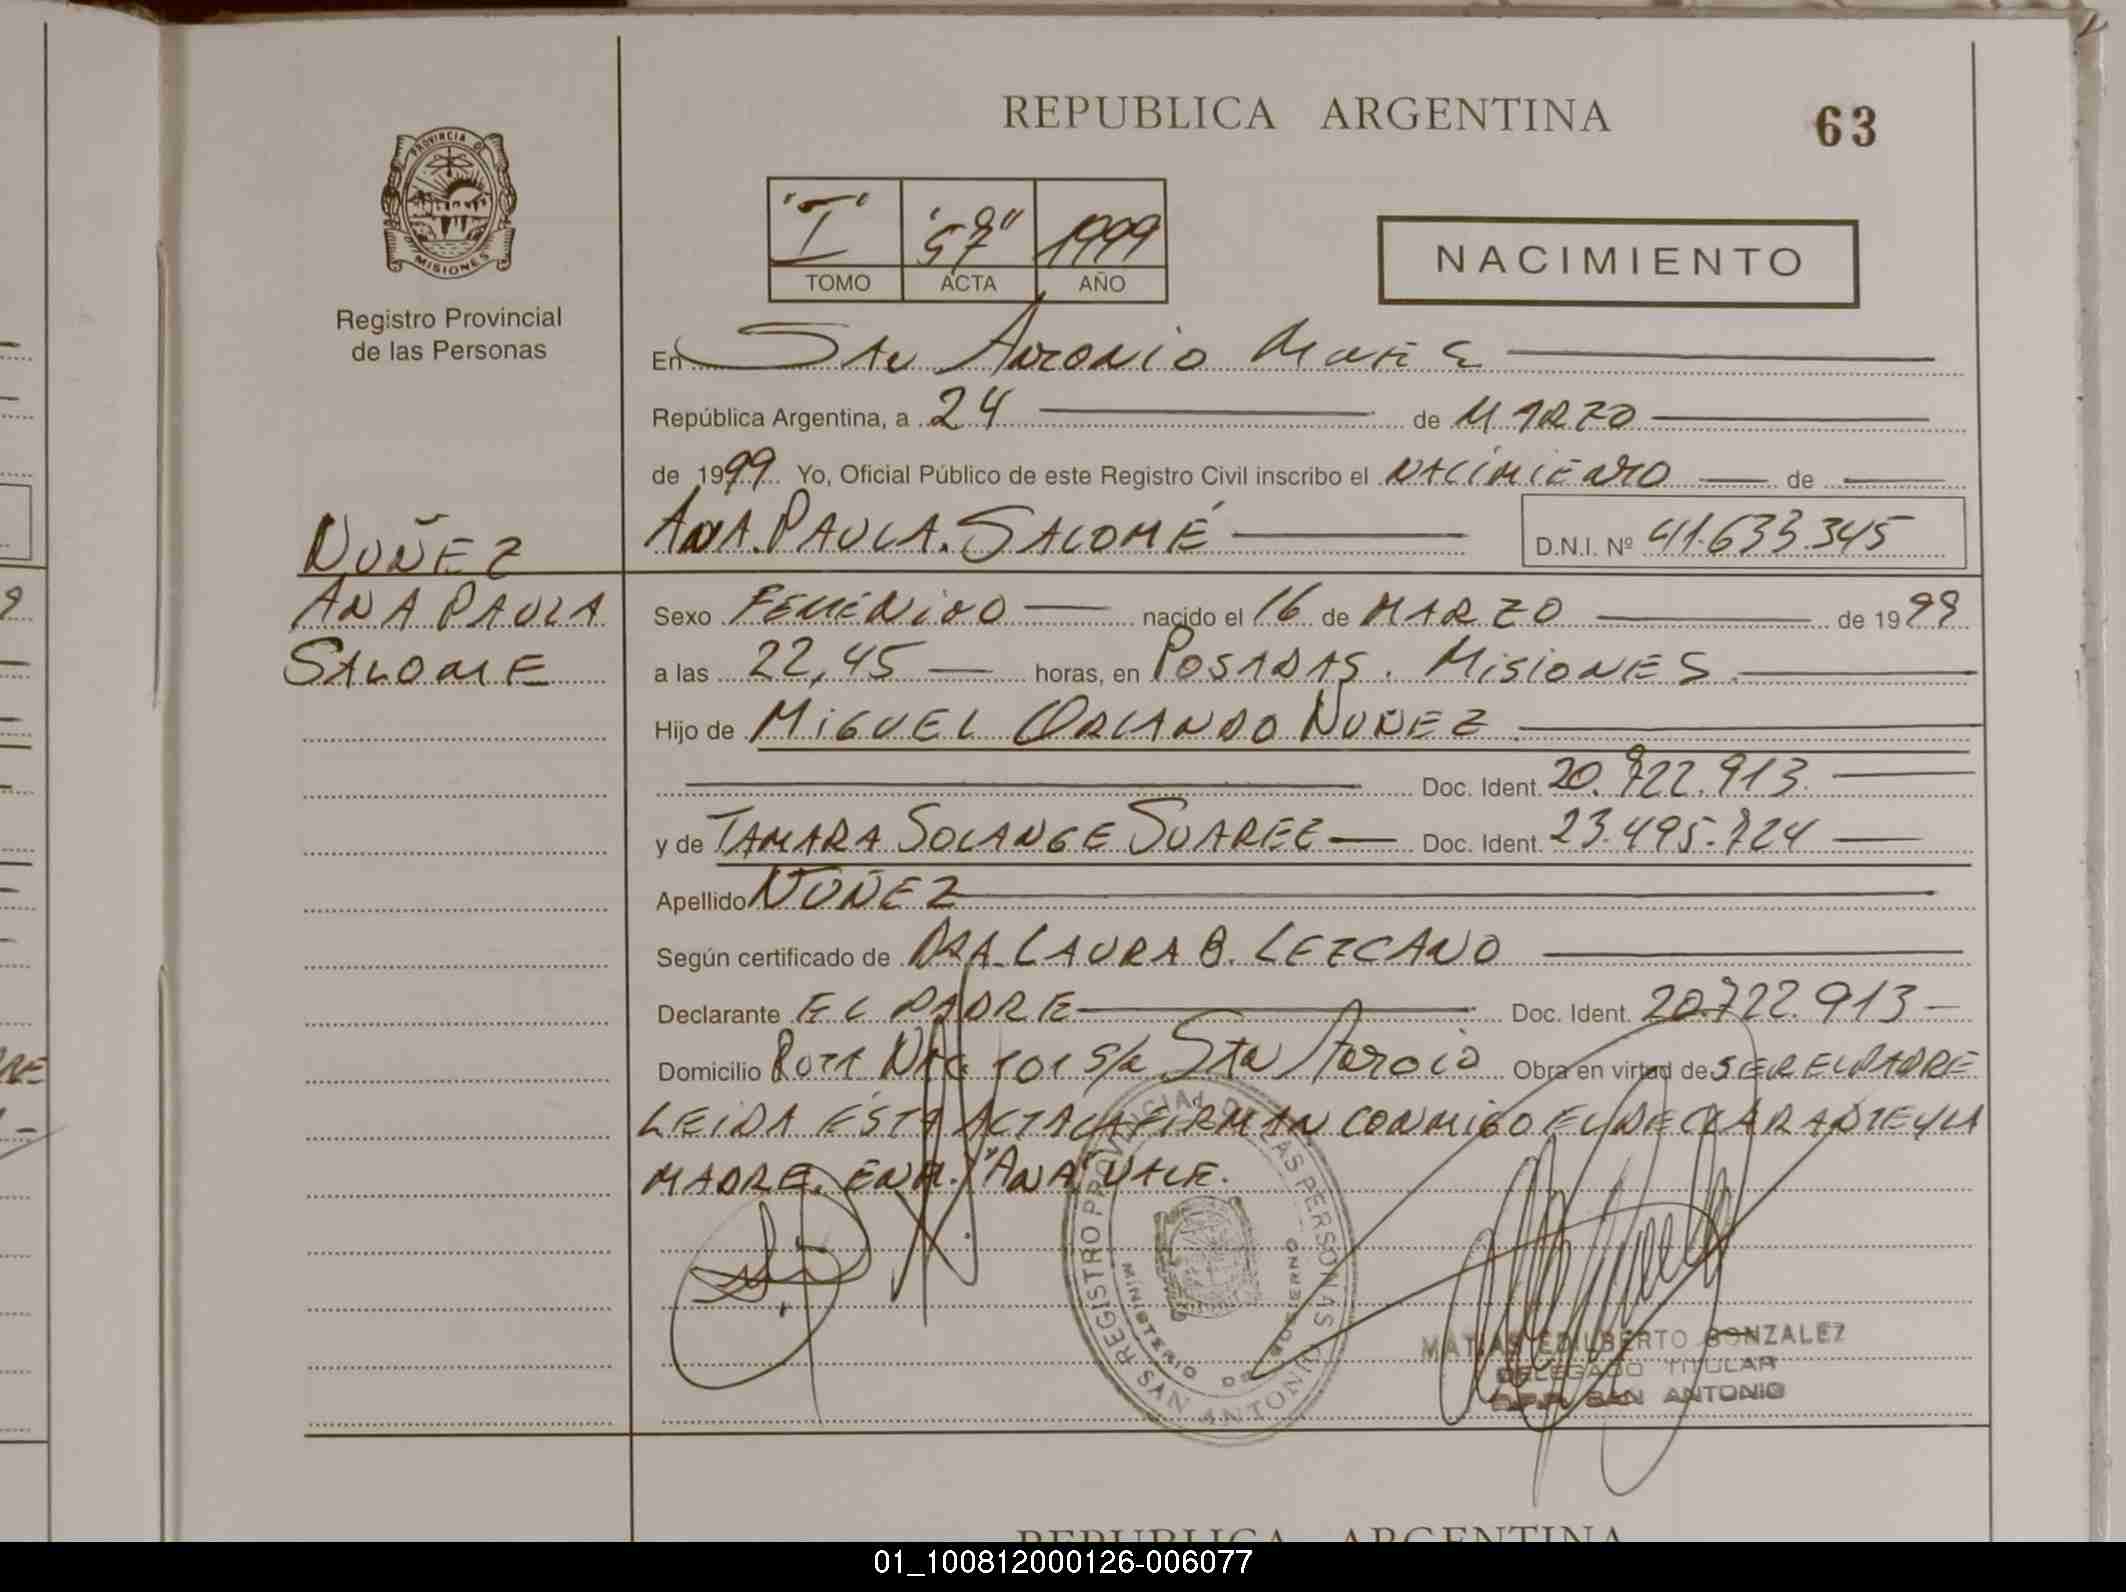 REPUBLICA ARGENTINA
63
PROVINCIA DE
MISIONES
Registro Provincial
de las Personas
"I"
1999
TOMO ACTA AÑO
NACIMIENTO
En San Antonio
República Argentina, a 24 de MARZO
de 1999 Yo, Oficial Público de este Registro Civil inscribo el NACIMIENTO de
NUÑEZ
ANA PAULA
SALOME
ANA PAULA. SALOMÉ D.N.I. Nº 41.633.345
Sexo FEMENINO nacido el 16 de MARZO de 1999
a las 22,45 horas, en POSADAS. MISIONES.
Hijo de MIGUEL ORLANDO NUÑEZ
Doc. Ident. 20.722.913.
y de TAMARA SOLANGE SUAREZ Doc. Ident. 23.495.724
Apellido NUÑEZ
Según certificado de DRA. LAURA B. LEZCANO
Declarante EL PADRE Doc. Ident. 20.722.913
Domicilio RUTA NAC 101 S/N Obra en virtud de SER EL PADRE
LEIDA ESTA ACTA LA FIRMAN CONMIGO EL DECLARANTE Y LA
MADRE. "ANA" VALE.
REGISTRO PROVINCIAL DE LAS PERSONAS
MINISTERIO DE GOBIERNO
SAN ANTONIO
MATIAS EDILBERTO GONZALEZ
DELEGADO TITULAR
SAN ANTONIO
REPUBLICA ARGENTINA
01_100812000126-006077